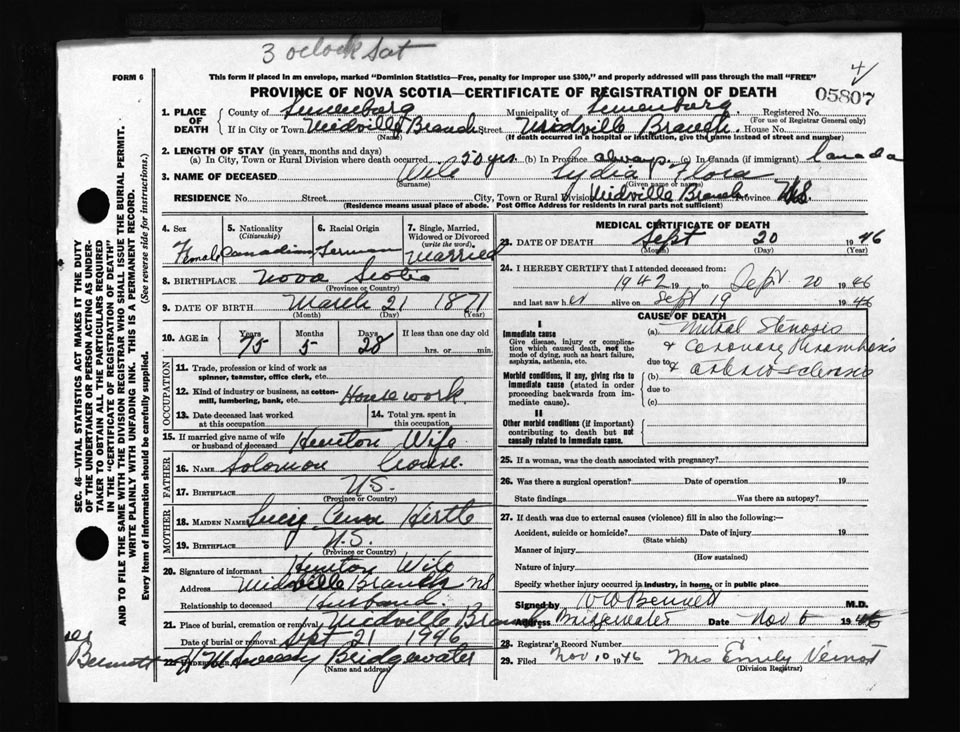 3 oclock Sat
FORM 6
This form if placed in an envelope, marked "Dominion Statistics—Free, penalty for improper use $300," and properly addressed will pass through the mail "FREE"
4/
PROVINCE OF NOVA SCOTIA—CERTIFICATE OF REGISTRATION OF DEATH
05807
1. PLACE OF DEATH
County of Lunenburg Municipality of Lunenburg Registered No.
(For use of Registrar General only)
If in City or Town Midville Branch Street Midville Branch House No.
(Name) (If death occurred in a hospital or institution, give the name instead of street and number)
2. LENGTH OF STAY (in years, months and days)
(a) In City, Town or Rural Division where death occurred 50 yrs (b) In Province always (c) In Canada (if immigrant) Canada
3. NAME OF DECEASED Wile Lydia Flora
(Surname) (Given name or names)
RESIDENCE No. Street City, Town or Rural Division Midville Branch Province N.S.
(Residence means usual place of abode. Post Office Address for residents in rural parts not sufficient)
4. Sex Female
5. Nationality (Citizenship) Canadian
6. Racial Origin German
7. Single, Married, Widowed or Divorced (write the word) Married
8. BIRTHPLACE Nova Scotia
(Province or Country)
9. DATE OF BIRTH March 21 1871
(Month) (Day) (Year)
10. AGE in Years 75 Months 5 Days 28 If less than one day old hrs. or min.
OCCUPATION
11. Trade, profession or kind of work as spinner, teamster, office clerk, etc.
12. Kind of industry or business, as cotton-mill, lumbering, bank, etc. Housework.
13. Date deceased last worked at this occupation
14. Total yrs. spent in this occupation
15. If married give name of wife or husband of deceased Wile
FATHER
16. NAME Solomon Crouse.
17. BIRTHPLACE N.S.
(Province or Country)
MOTHER
18. MAIDEN NAME Hirtle
19. BIRTHPLACE N.S.
(Province or Country)
20. Signature of informant Wile
Address Midville Branch N.S.
Relationship to deceased Husband.
21. Place of burial, cremation or removal Midville Branch
Date of burial or removal Sept 21 1946
22. UNDERTAKER Bridgewater
(Name and address)
Bennett
MEDICAL CERTIFICATE OF DEATH
23. DATE OF DEATH Sept 20 1946
(Month) (Day) (Year)
24. I HEREBY CERTIFY that I attended deceased from:
1942 19 to Sept 20 1946
and last saw her alive on Sept 19 1946
CAUSE OF DEATH
I
Immediate cause
Give disease, injury or complication which caused death, not the mode of dying, such as heart failure, asphyxia, asthenia, etc.
(a) Mitral Stenosis
& Coronary Thrombosis
due to
Morbid conditions, if any, giving rise to immediate cause (stated in order proceeding backwards from immediate cause).
(b) & arteriosclerosis
due to
(c)
II
Other morbid conditions (if important) contributing to death but not causally related to immediate cause.
25. If a woman, was the death associated with pregnancy?
26. Was there a surgical operation? Date of operation 19
State findings Was there an autopsy?
27. If death was due to external causes (violence) fill in also the following:—
Accident, suicide or homicide? Date of injury 19
(State which)
Manner of injury
(How sustained)
Nature of injury
Specify whether injury occurred in industry, in home, or in public place
Signed by W W Bennett M.D.
Address Bridgewater Date Nov 6 1946
28. Registrar's Record Number
29. Filed Nov 10 1946 Mrs Emily Veinot
(Division Registrar)
SEC. 46—VITAL STATISTICS ACT MAKES IT THE DUTY OF THE UNDERTAKER OR PERSON ACTING AS UNDERTAKER TO OBTAIN ALL THE PARTICULARS REQUIRED IN THE "CERTIFICATE OF REGISTRATION OF DEATH" AND TO FILE THE SAME WITH THE DIVISION REGISTRAR WHO SHALL ISSUE THE BURIAL PERMIT.
WRITE PLAINLY WITH UNFADING INK. THIS IS A PERMANENT RECORD.
Every item of information should be carefully supplied. (See reverse side for instructions.)